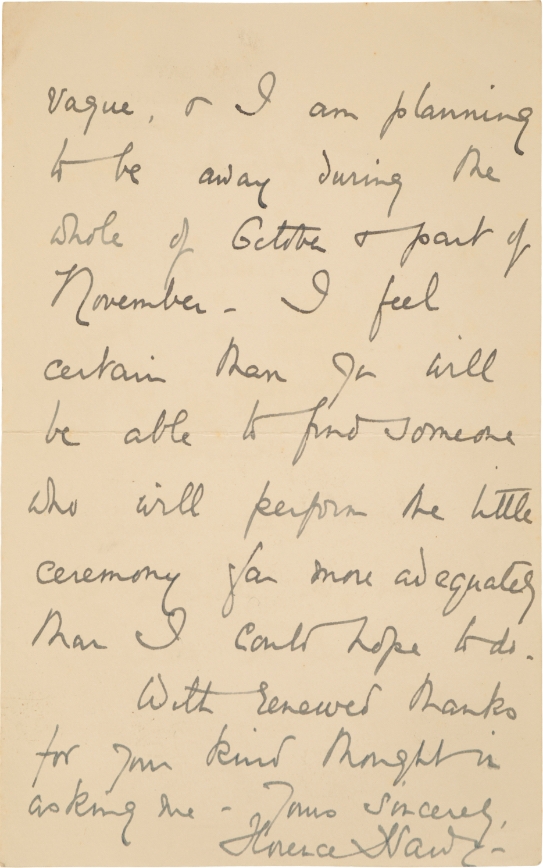 vague, & I am planning
to be away during the
whole of October & part of
November - I feel
certain than you will
be able to find someone
who will perform the little
ceremony far more adequately
than I could hope to do.
With renewed thanks
for your kind thought in
asking me - Yours sincerely,
Florence Hardy -